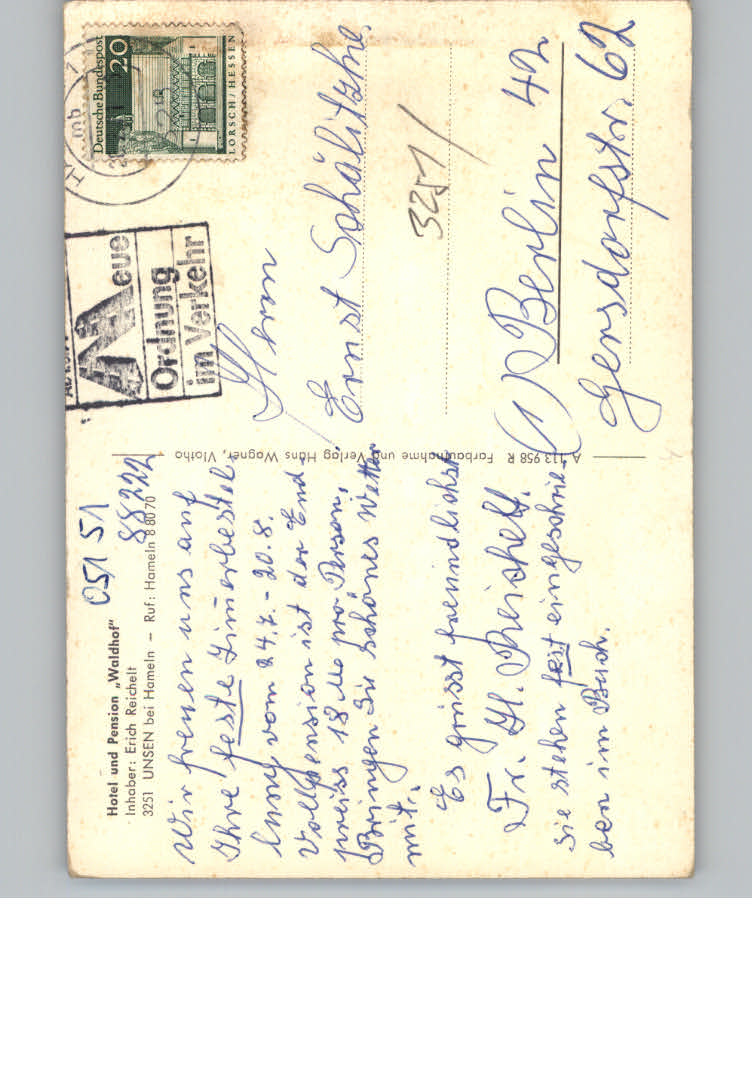 Hotel und Pension „Waldhof"
Inhaber: Erich Reichelt
3251 UNSEN bei Hameln — Ruf: Hameln 8 80 70
05151
88222
Wir freuen uns auf
Ihre feste Zimerbestel-
lung vom 24.7.-20.8.
Vollpension ist der End-
preiss 18 M pro Person.
Bringen Sie schönes Wetter
mit.
Es grüsst freundlichst
Fr. H. Reichelt.
Sie stehen fest eingeschrie-
ben im Buch.
A 113 958 R Farbaufnahme und Verlag Hans Wagner, Vlotho
Deutsche Bundespost
20
LORSCH/HESSEN
Neue
Ordnung
im Verkehr
Herrn
Ernst Schälitzke.
3251/
(1) Berlin 42
Gersdorfstr. 62